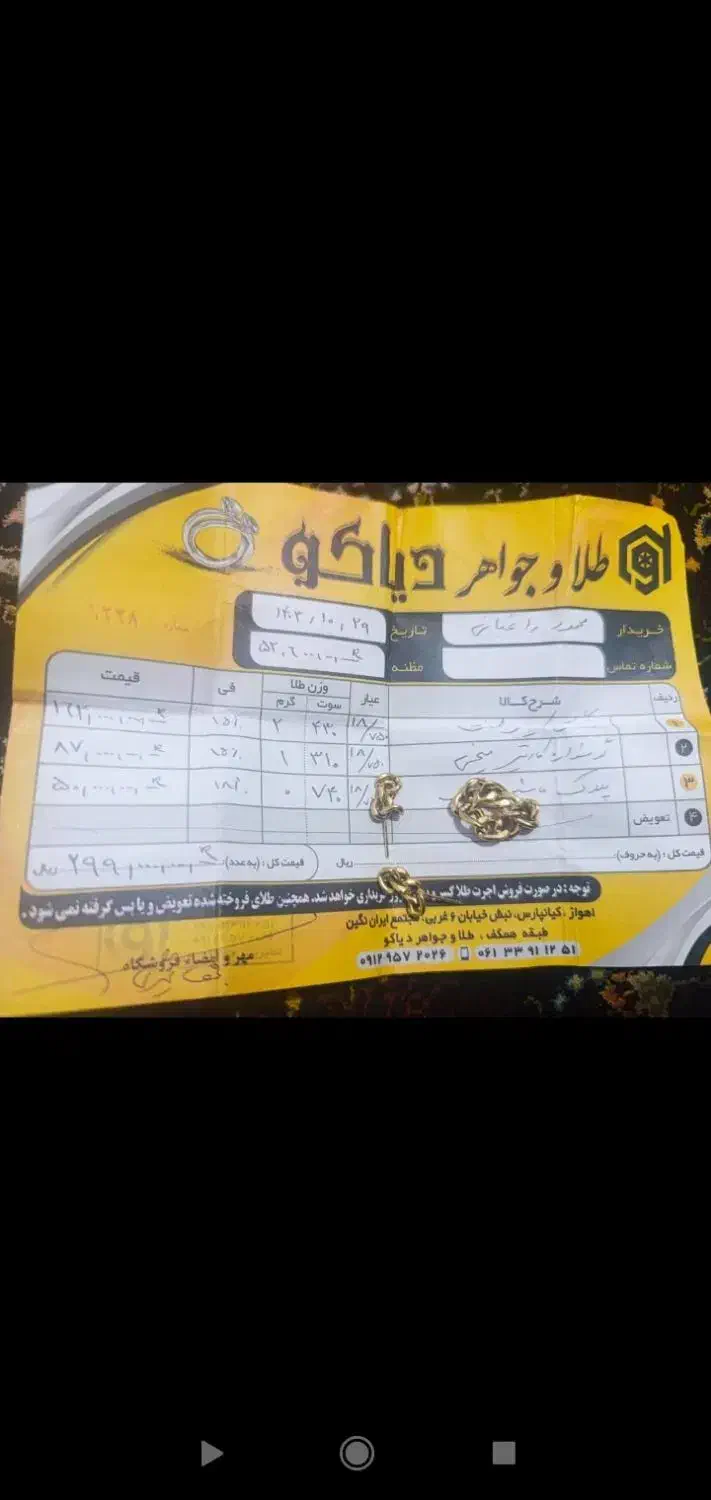 طلا و جواهر دیاکو
خریدار
تاریخ ۱۴۰۳,۱۰,۲۹
شماره ۱۲۳۸
شماره تماس
مظنه
ردیف شرح کالا عیار وزن طلا فی قیمت
سوت گرم
۱۸/۷۵۰ ۴۳۰ ۲ ۱۵٪
۲ ۱۸/۷۵۰ ۳۱۰ ۱ ۱۵٪ ۸۷,۰۰۰,۰۰۰
۳ پلاک ۱۸/ ۷۴۰ ۰ ۱۸٪ ۵۰,۰۰۰,۰۰۰
۴ تعویض
قیمت کل : (به حروف) ریال قیمت کل : (به عدد) ۲۹۹,۰۰۰,۰۰۰ ریال
توجه : در صورت فروش اجرت طلا کسر و خریداری خواهد شد. همچنین طلای فروخته شده تعویض و یا پس گرفته نمی شود .
اهواز ، کیانپارس، نبش خیابان ۶ غربی، مجتمع ایران نگین
طبقه همکف ، طلا و جواهر دیاکو
۰۶۱ ۳۳ ۹۱ ۱۲ ۵۱ ۰۹۱۲ ۹۵۷ ۲۰۲۶
مهر و امضاء فروشگاه